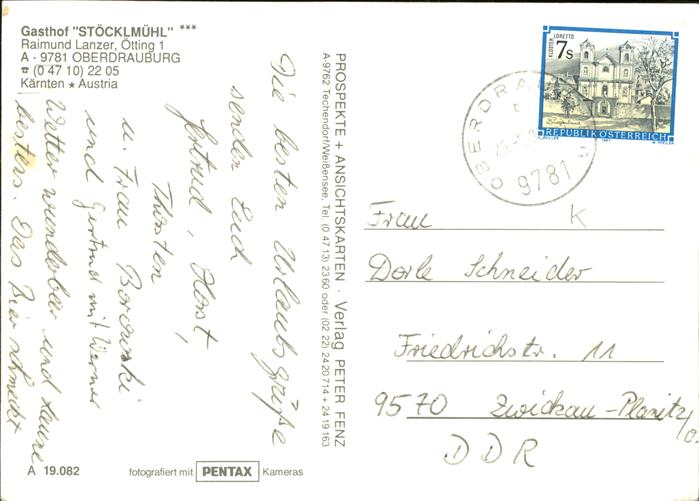 Gasthof "STÖCKLMÜHL" ***
Raimund Lanzer, Ötting 1
A - 9781 OBERDRAUBURG
☎ (0 47 10) 22 05
Kärnten ★ Austria
Die besten Urlaubsgrüße
senden Euch
Gertrud, Horst,
Thorsten
u. Frau Borowski
und Gertrud mit Werner
Wetter wunderbar und Laune
bestens. Das Bier schmeckt
A 19.082
fotografiert mit PENTAX Kameras
PROSPEKTE + ANSICHTSKARTEN · Verlag PETER FENZ
A-9762 Techendorf/Weißensee, Tel. (0 47 13) 23 60 oder (02 22) 24 20 714 + 24 19 163
KLOSTER LORETTO
7s
REPUBLIK ÖSTERREICH
OBERDRAU
9781
Frau K
Dorle Schneider
Friedrichstr. 11
9570 Zwickau-Planitz
DDR